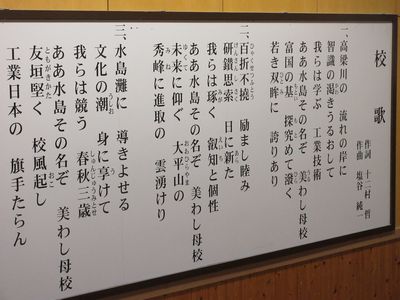 校歌
作詞 十二村 哲
作曲 塩谷 純一
一、高梁川の 流れの岸に
智識の渇きうるおして
我らは学ぶ 工業技術
ああ水島その名ぞ 美わし母校
富国の基 探究めて潑く
若き双眸に 誇りあり
二、百折不撓 励まし睦み
研鑽思索 日に新た
我らは琢く 叡知と個性
ああ水島その名ぞ 美わし母校
未来に仰ぐ 大平山の
秀峰に進取の 雲湧けり
三、水島灘に 導きよせる
文化の潮 身に享けて
我らは競う 春秋三歳
ああ水島その名ぞ 美わし母校
友垣堅く 校風起し
工業日本の 旗手たらん